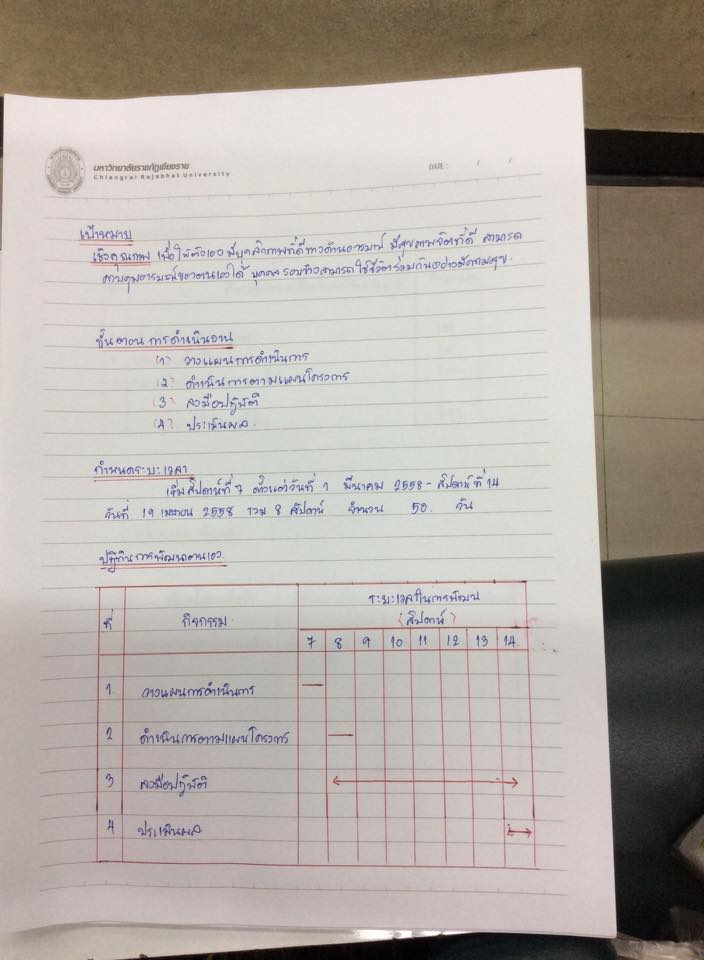 มหาวิทยาลัยราชภัฏเชียงราย
Chiangrai Rajabhat University
DATE : / /
เป้าหมาย
เชิงคุณภาพ เพื่อให้ตัวเองมีบุคลิกภาพที่ดีทางด้านอารมณ์ มีสุขภาพจิตที่ดี สามารถ
ควบคุมอารมณ์ของตนเองได้ บุคคลรอบข้างสามารถใช้ชีวิตร่วมกันอย่างมีความสุข.
ขั้นตอนการดำเนินงาน
(1) วางแผนการดำเนินการ
(2) ดำเนินการตามแผนโครงการ
(3) ลงมือปฏิบัติ
(4) ประเมินผล.
กำหนดระยะเวลา
เริ่มสัปดาห์ที่ 7 ตั้งแต่วันที่ 1 มีนาคม 2558 - สัปดาห์ที่ 14
วันที่ 19 เมษายน 2558 รวม 8 สัปดาห์ จำนวน 50. วัน
ปฏิทินการพัฒนาตนเอง.
ที่ กิจกรรม ระยะเวลาในการพัฒนา
(สัปดาห์)
7 8 9 10 11 12 13 14.
1. วางแผนการดำเนินการ
2 ดำเนินการตามแผนโครงการ
3 ลงมือปฏิบัติ
4 ประเมินผล